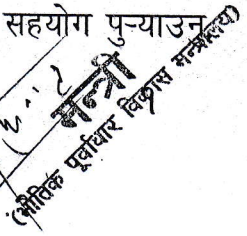 सहयोग पुऱ्याउन
मन्त्री
(भौतिक पूर्वाधार विकास मन्त्रालय)